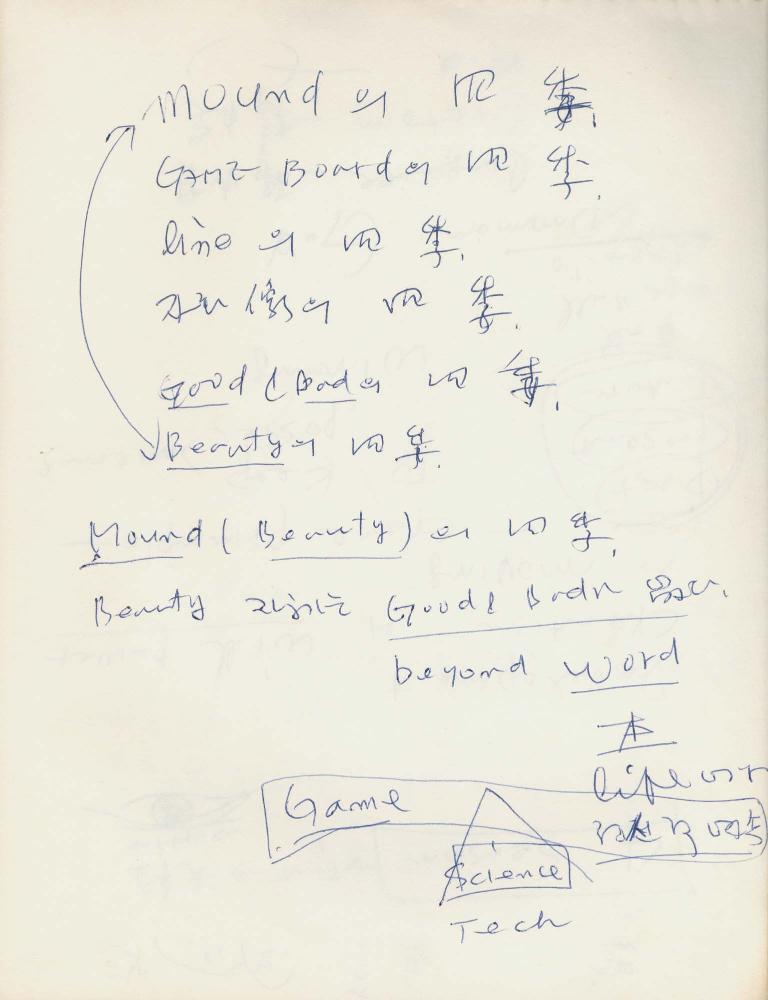 Mound의 四季.
GAME Board의 四季.
line의 四季.
자화像의 四季.
Good & Bad의 四季.
Beauty의 四季.
Mound (Beauty)의 四季.
Beauty Good & Bad
beyond word
life
Game
Science
Tech